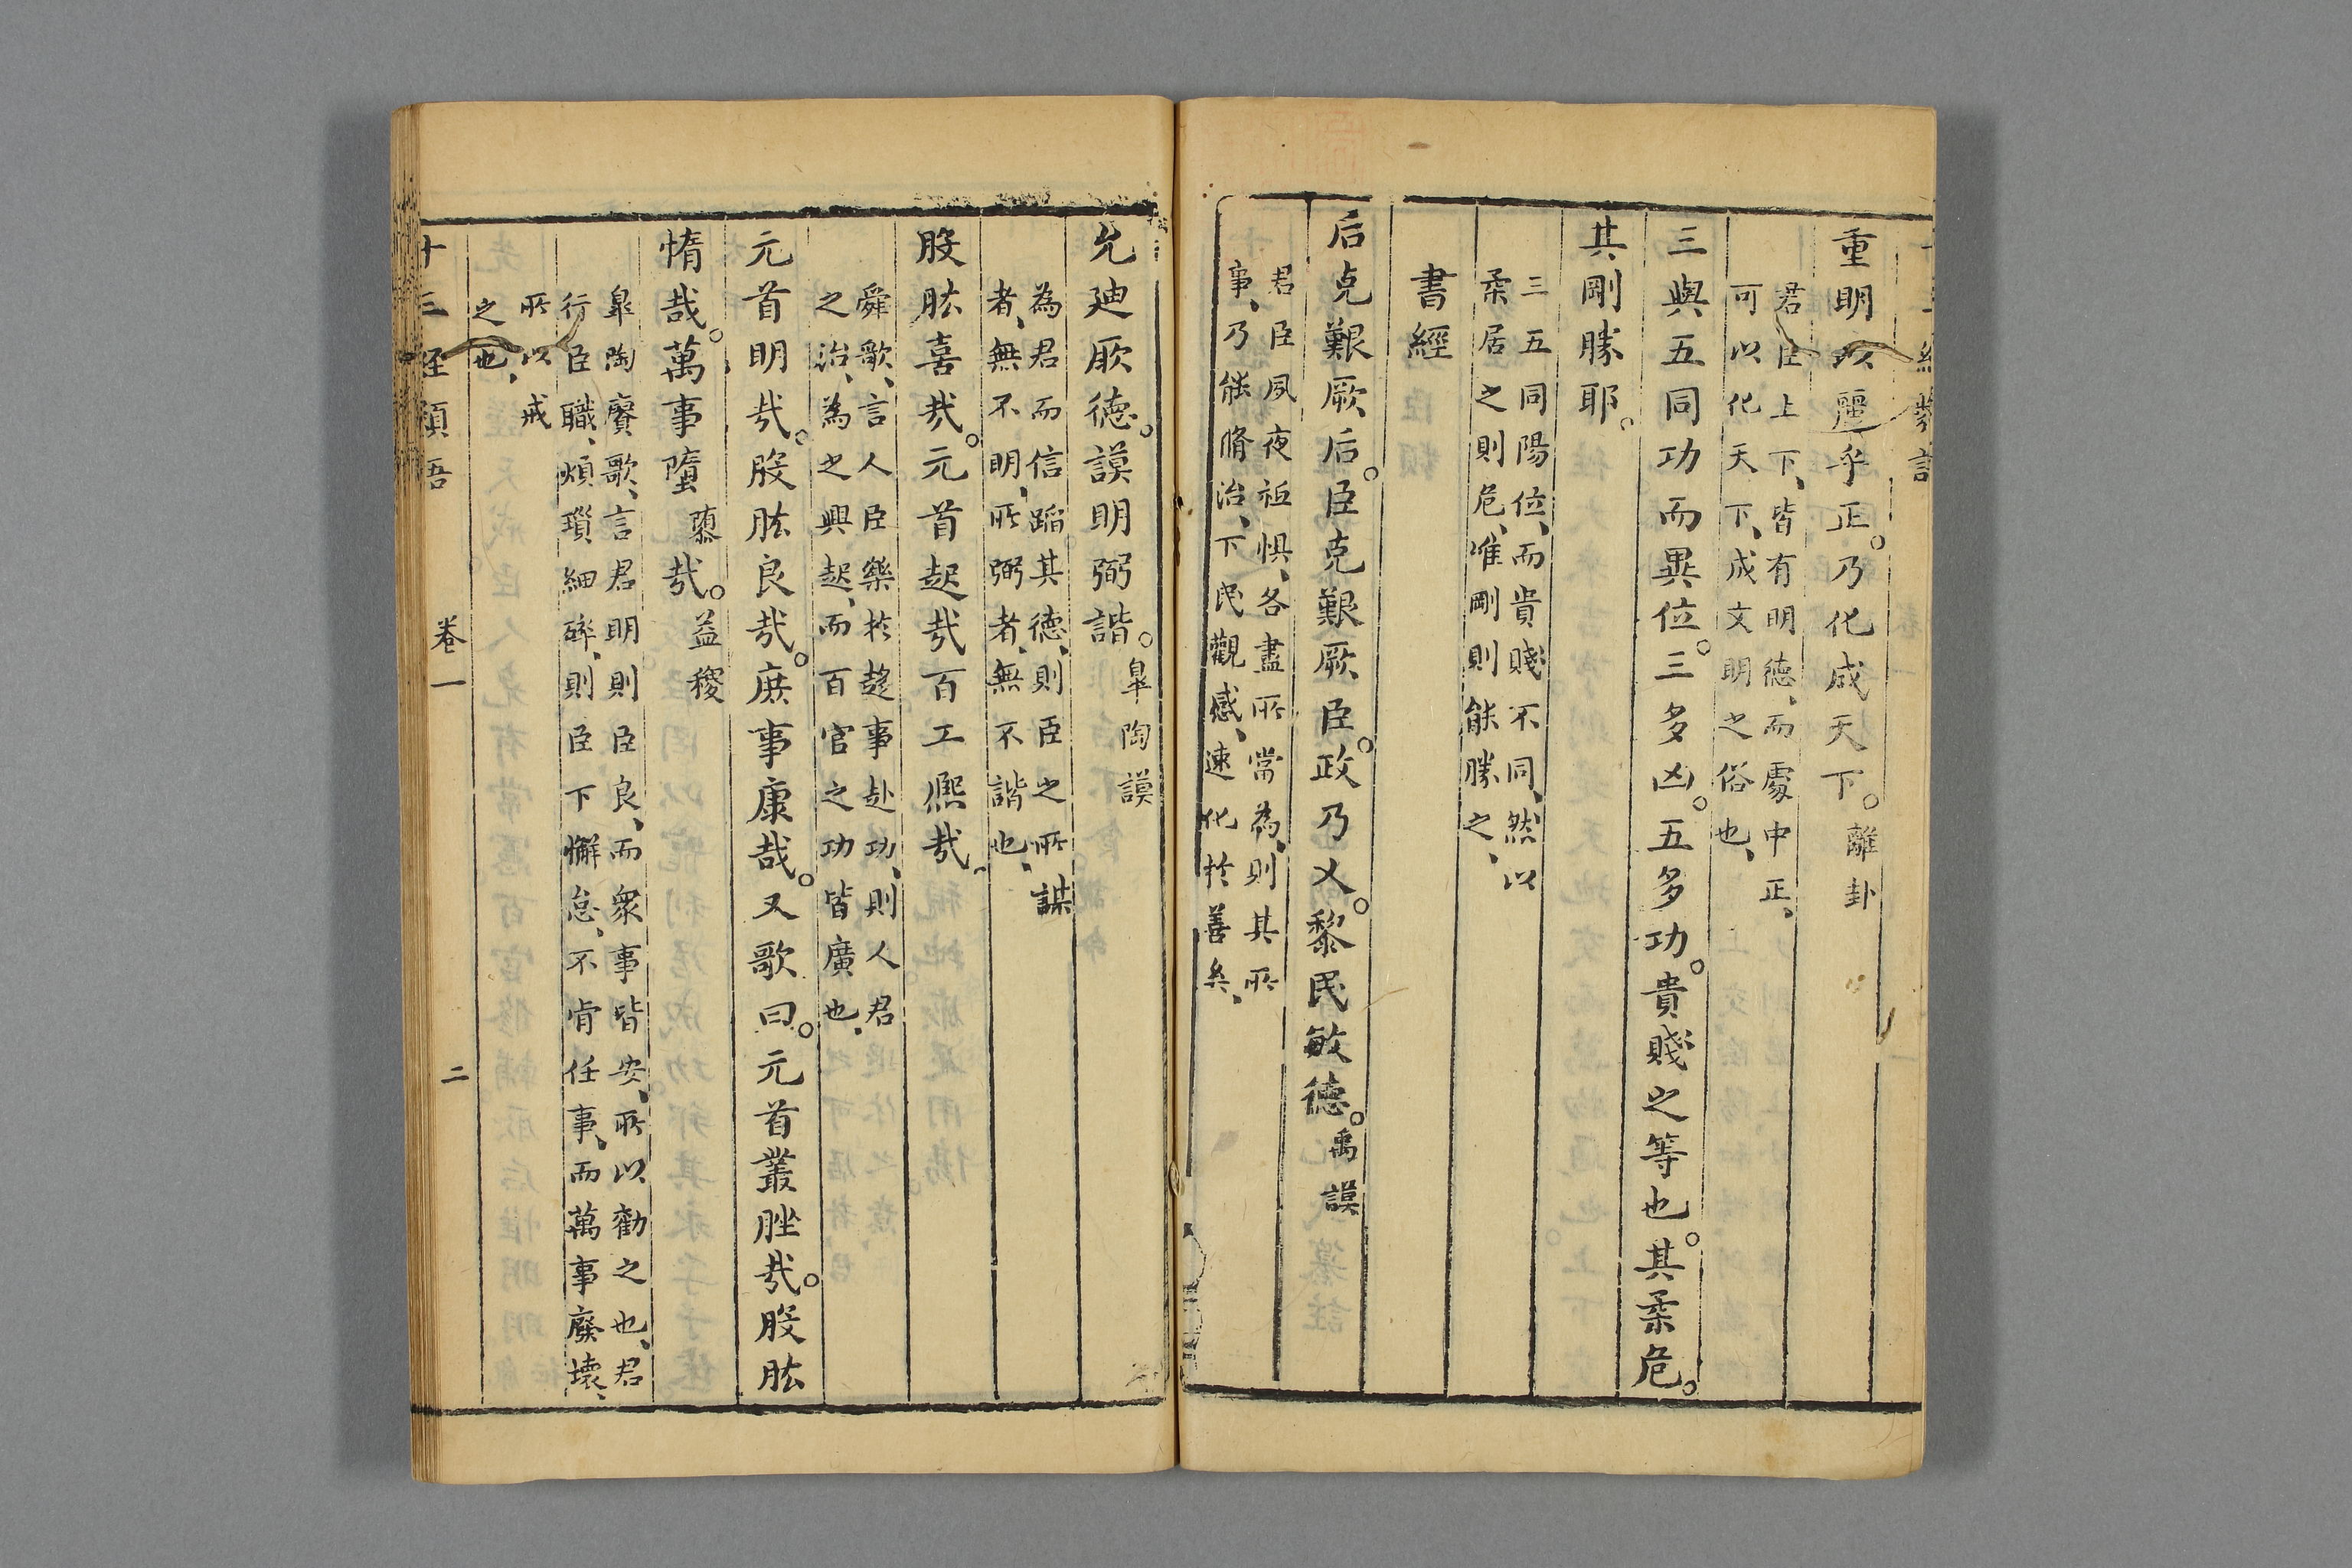 重明以麗乎正。乃化成天下。離卦
君臣上下、皆有明德、而處中正、
可以化天下、成文明之俗也、
三與五同功而異位。三多凶。五多功。貴賤之等也。其柔危。
其剛勝耶。
三五同陽位、而貴賤不同、然以
柔居之則危、唯剛則能勝之、
書經
后克艱厥后。臣克艱厥臣。政乃乂。黎民敏德。禹謨
君臣夙夜祗惧、各盡所當為、則其所
事、乃能脩治、下民觀感、速化於善矣、
允迪厥德。謨明弼諧。皐陶謨
為君而信蹈其德、則臣之所謀
者、無不明、所弼者、無不諧也、
股肱喜哉。元首起哉百工熈哉、
舜歌、言人臣樂於趍事赴功、則人君
之治、為之興起、而百官之功皆廣也、
元首明哉。股肱良哉。庶事康哉。又歌曰。元首叢脞哉。股肱
惰哉。萬事墮隳哉。益稷
皐陶賡歌、言君明則臣良、而衆事皆安、所以勸之也、君
行臣職、煩瑣細碎、則臣下懈怠、不肯任事、而萬事廢壞、
所以戒
之也、
十三經類語 卷一 二